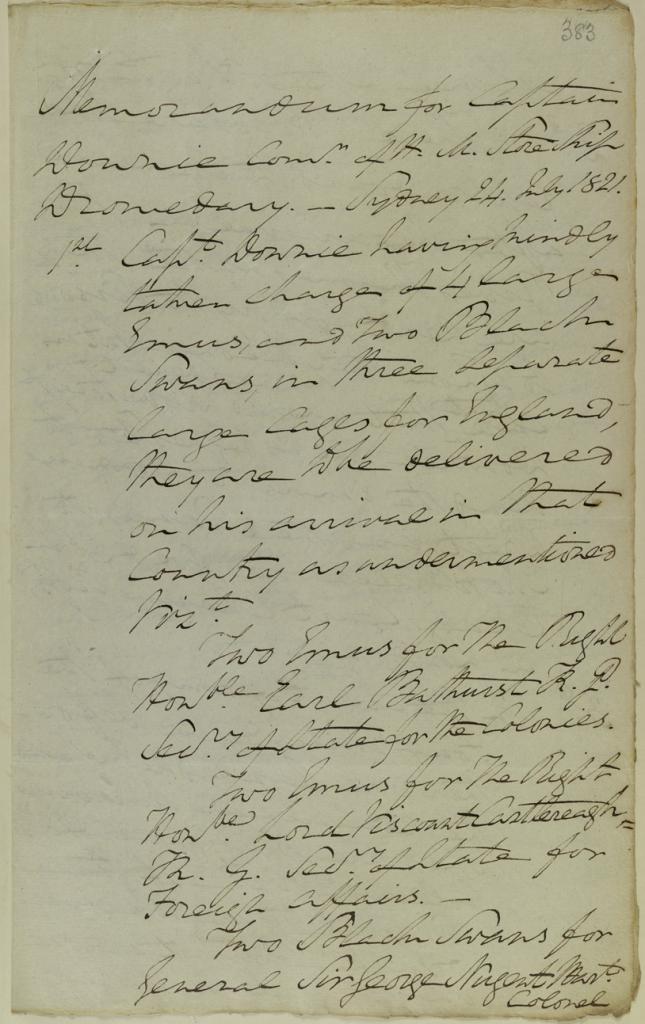 383
Memorandum for Captain
Downie Comr. of H. M. Store Ship
Dromedary. — Sydney 24. July 1821.
1st. Capt. Downie having kindly
taken charge of 4 large
Emus, and Two Black
Swans, in three separate
large Cages for England,
they are to be delivered
on his arrival in that
Country as undermentioned
Vizt.
Two Emus for The Right
Honble. Earl Bathurst K. G.
Secry. of State for the Colonies.
Two Emus for The Right
Honble. Lord Viscount Castlereagh =
K. G. Secry. of State for
Foreign affairs. —
Two Black Swans for
General Sir George Nugent Bart.
Colonel